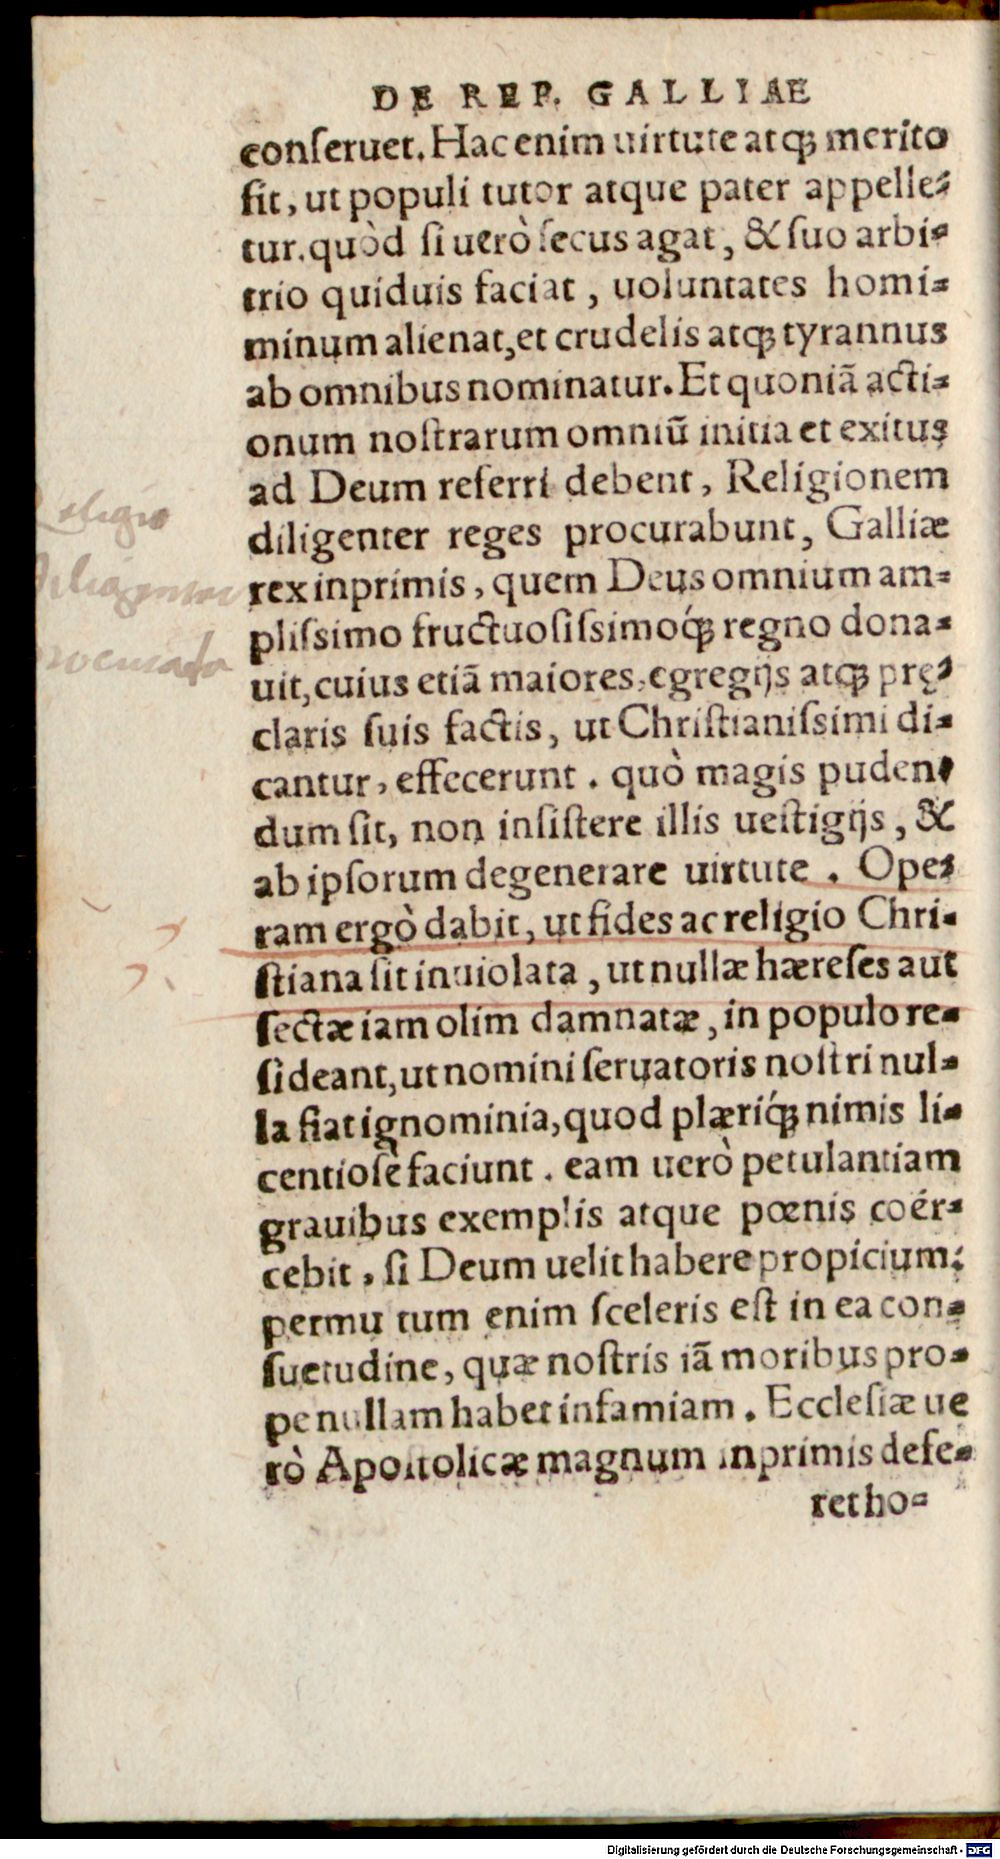 DE REP. GALLIAE
conseruet. Hac enim uirtute atq́; merito
fit, ut populi tutor atque pater appelle⸗
tur. quòd si uerò secus agat, & suo arbi⸗
trio quiduis faciat, uoluntates homi⸗
minum alienat, et crudelis atq; tyrannus
ab omnibus nominatur. Et quoniã acti⸗
onum nostrarum omniũ initia et exitus
ad Deum referri debent, Religionem
diligenter reges procurabunt, Galliæ
rex inprimis, quem Deus omnium am⸗
plissimo fructuosissimoq́; regno dona⸗
uit, cuius etiã maiores, egregijs atq; prę⸗
claris suis factis, ut Christianissimi di⸗
cantur, effecerunt. quò magis puden⸗
dum sit, non insistere illis uestigijs, &
ab ipsorum degenerare uirtute. Ope⸗
ram ergò dabit, ut fides ac religio Chri⸗
stiana sit inuiolata, ut nullæ hæreses aut
sectæ iam olim damnatæ, in populo re⸗
sideant, ut nomini seruatoris nostri nul⸗
la fiat ignominia, quod plæriq́; nimis li⸗
centiosè faciunt. eam uerò petulantiam
grauibus exemplis atque pœnis coér⸗
cebit, si Deum uelit habere propicium:
permu tum enim sceleris est in ea con⸗
suetudine, quæ nostris iã moribus pro⸗
pe nullam habet infamiam. Ecclesiæ ue
rò Apostolicæ magnum inprimis defe⸗
ret ho⸗
Religio
diligenter
procuranda
Digitalisierung gefördert durch die Deutsche Forschungsgemeinschaft - DFG